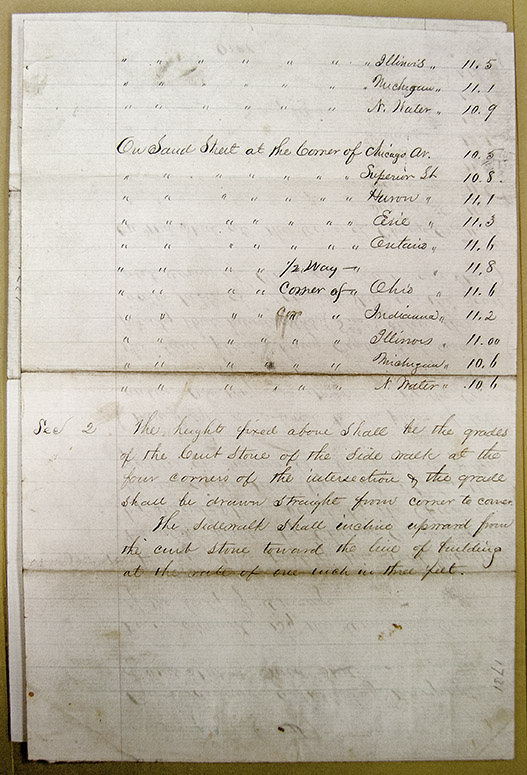 " " " " " " " Illinois " 11.5
" " " " " " " Michigan " 11.1
" " " " " " " N. Water " 10.9
On Sand Street at the Corner of Chicago Av. 10.5
" " " " " " " Superior St 10.8
" " " " " " " Huron " 11.1
" " " " " " " Erie " 11.3
" " " " " " " Ontario " 11.6
" " " " 1/2 Way — " " 11.8
" " " " Corner of " Ohio " 11.6
" " " " Cor " " Indianna " 11.2
" " " " " " Illinois " 11.00
" " " " " " Michigan " 10.6
" " " " " " N. Water " 10.6
Sec 2 The heights fixed above shall be the grades
of the Curb Stone of the Side walk at the
four corners of the intersection & the grade
shall be drawn straight from corner to corner.
The sidewalk shall incline upward from
the curb stone toward the line of building
at the rate of one inch in three feet.
1781